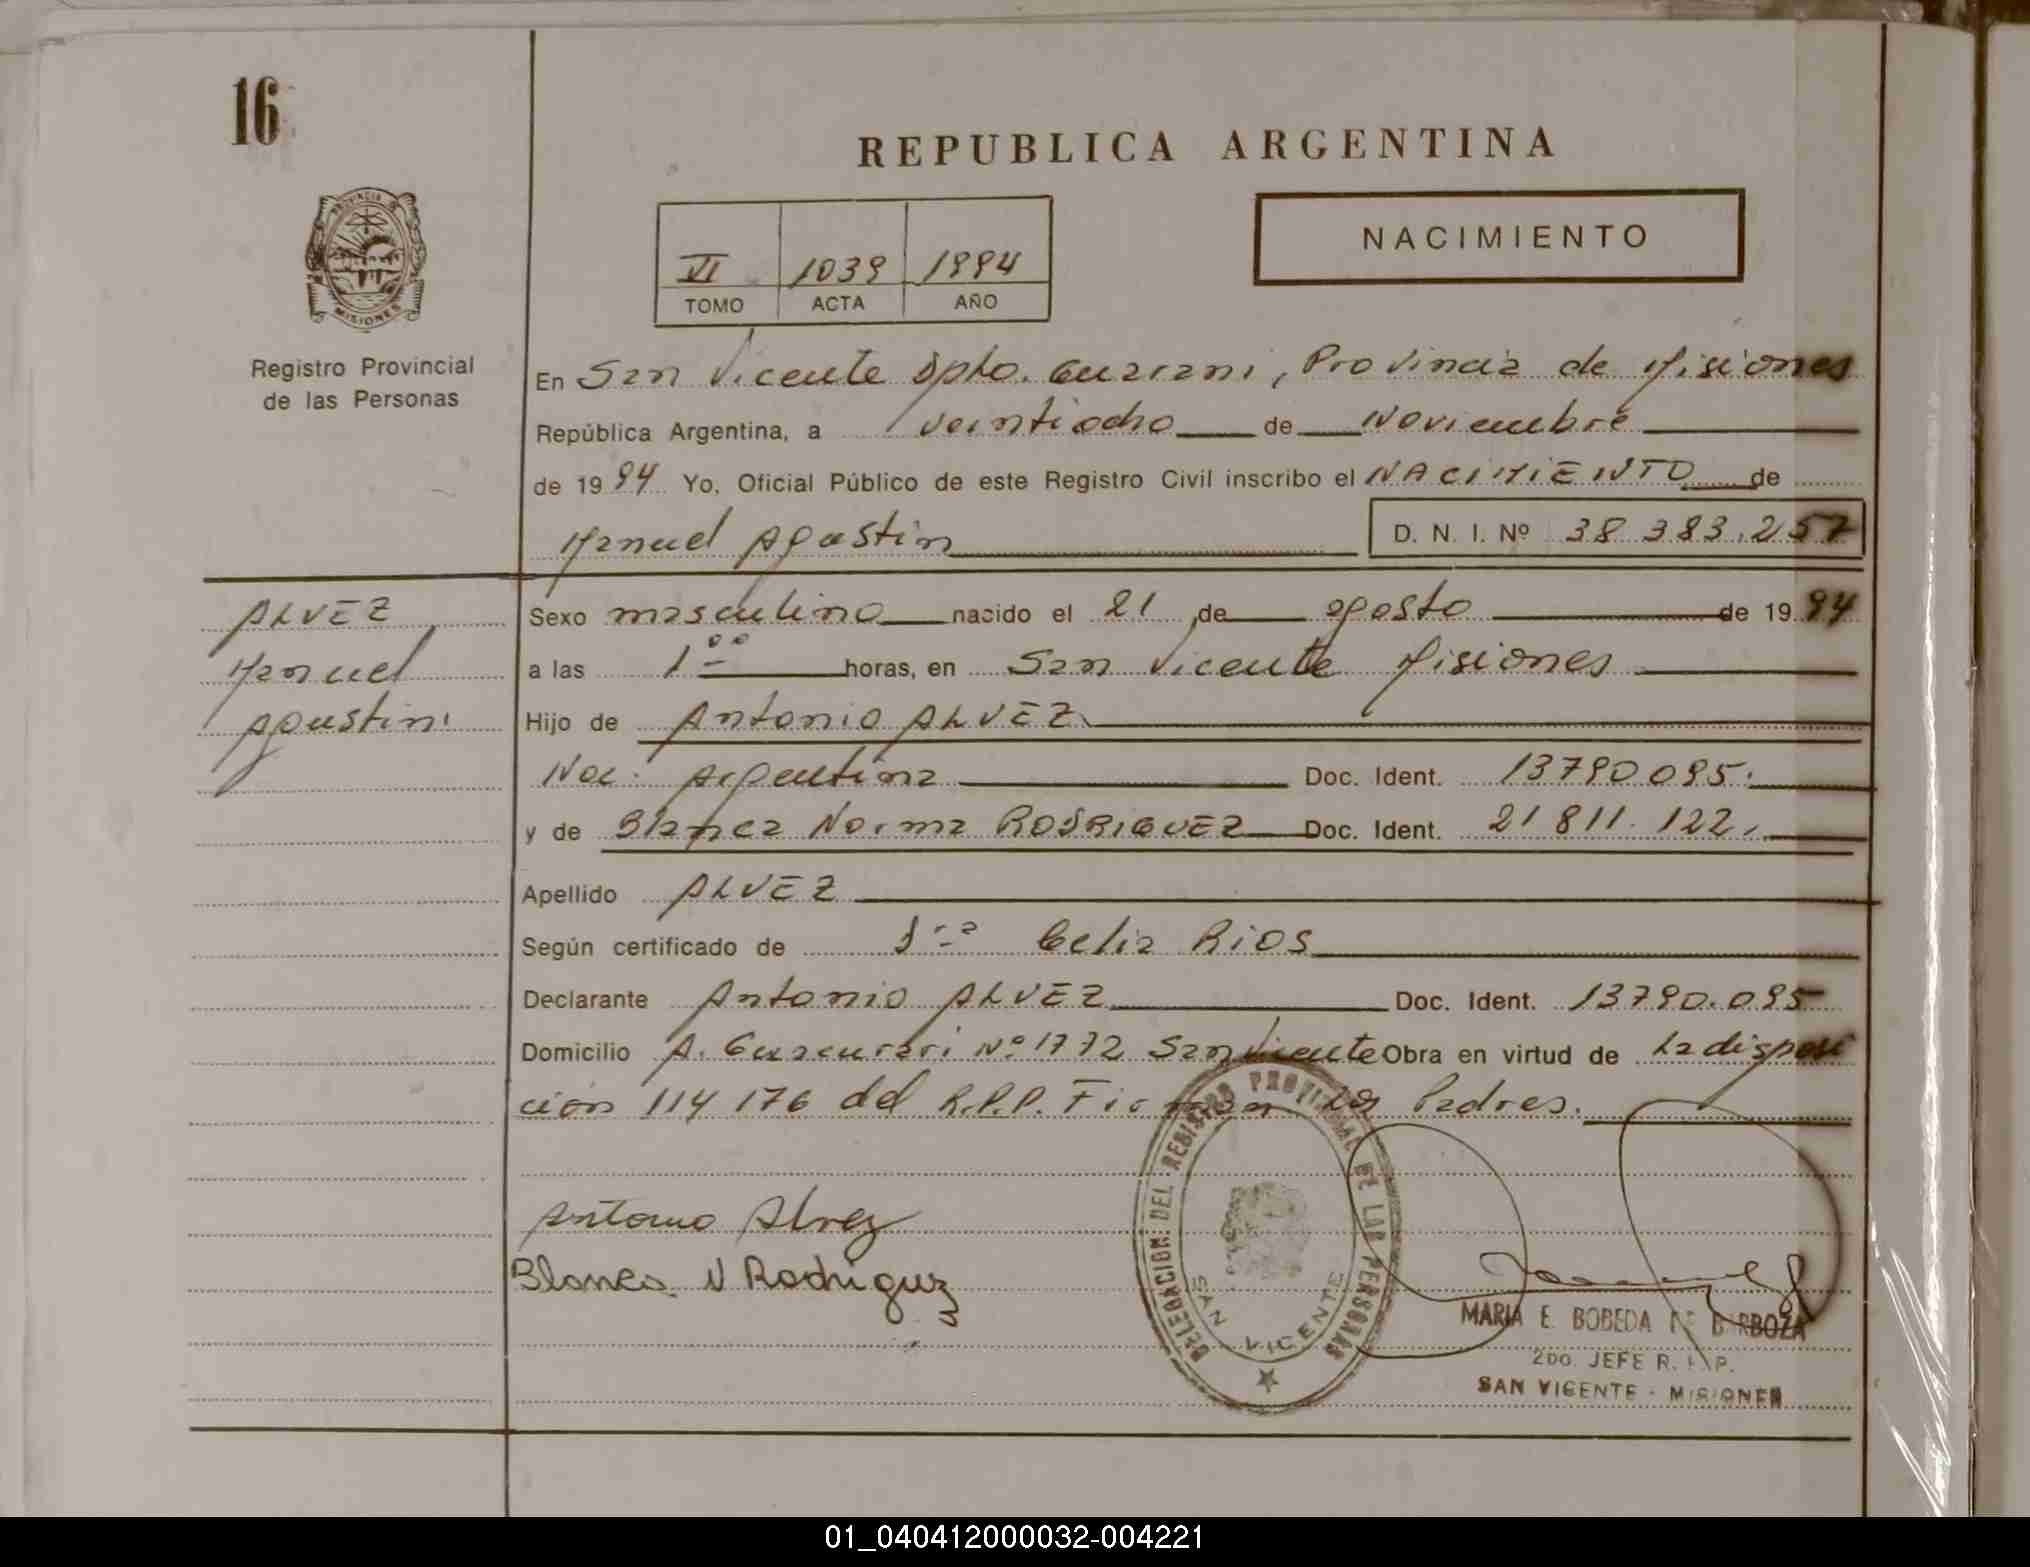 16
REPUBLICA ARGENTINA
PROVINCIA DE
MISIONES
Registro Provincial
de las Personas
VI 1039 1994
TOMO ACTA AÑO
NACIMIENTO
En San Vicente Dpto. Guarani, Provincia de Misiones
República Argentina, a veintiocho de Noviembre
de 1994 Yo, Oficial Público de este Registro Civil inscribo el NACIMIENTO de
Manuel Agustin D. N. I. Nº 38 383.257
ALVEZ
Manuel
Agustin
Sexo masculino nacido el 21 de agosto de 1994
a las 1 00 horas, en San Vicente Misiones
Hijo de Antonio ALVEZ
Nac. Argentina Doc. Ident. 13790.095.
y de Blanca Norma RODRIGUEZ Doc. Ident. 21 811. 122.
Apellido ALVEZ
Según certificado de Celia Rios
Declarante Antonio ALVEZ Doc. Ident. 13790.095
Domicilio A. Guacurari Nº 1772 San Vicente Obra en virtud de La disposi
ción 114 176 del R.P.P. Firman los Padres.
Antonio Alvez
Blanca N Rodriguz
DELEGACION DEL REGISTRO PROVINCIAL DE LAS PERSONAS
SAN VICENTE
MARIA E. BOBEDA DE BARBOZA
2DO. JEFE R. P. P.
SAN VICENTE - MISIONES
01_040412000032-004221